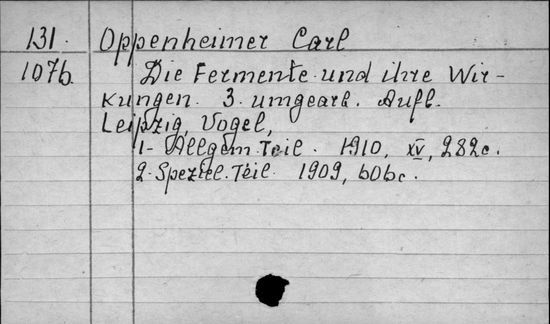 131. Oppenheimer Carl
107b. Die Fermente und ihre Wir-
kungen. 3. umgearb. Aufl.
Leipzig, Vogel,
1- Allgem. Teil. 1910, XV, 282c.
2. Speziel. Teil. 1909, 606c.